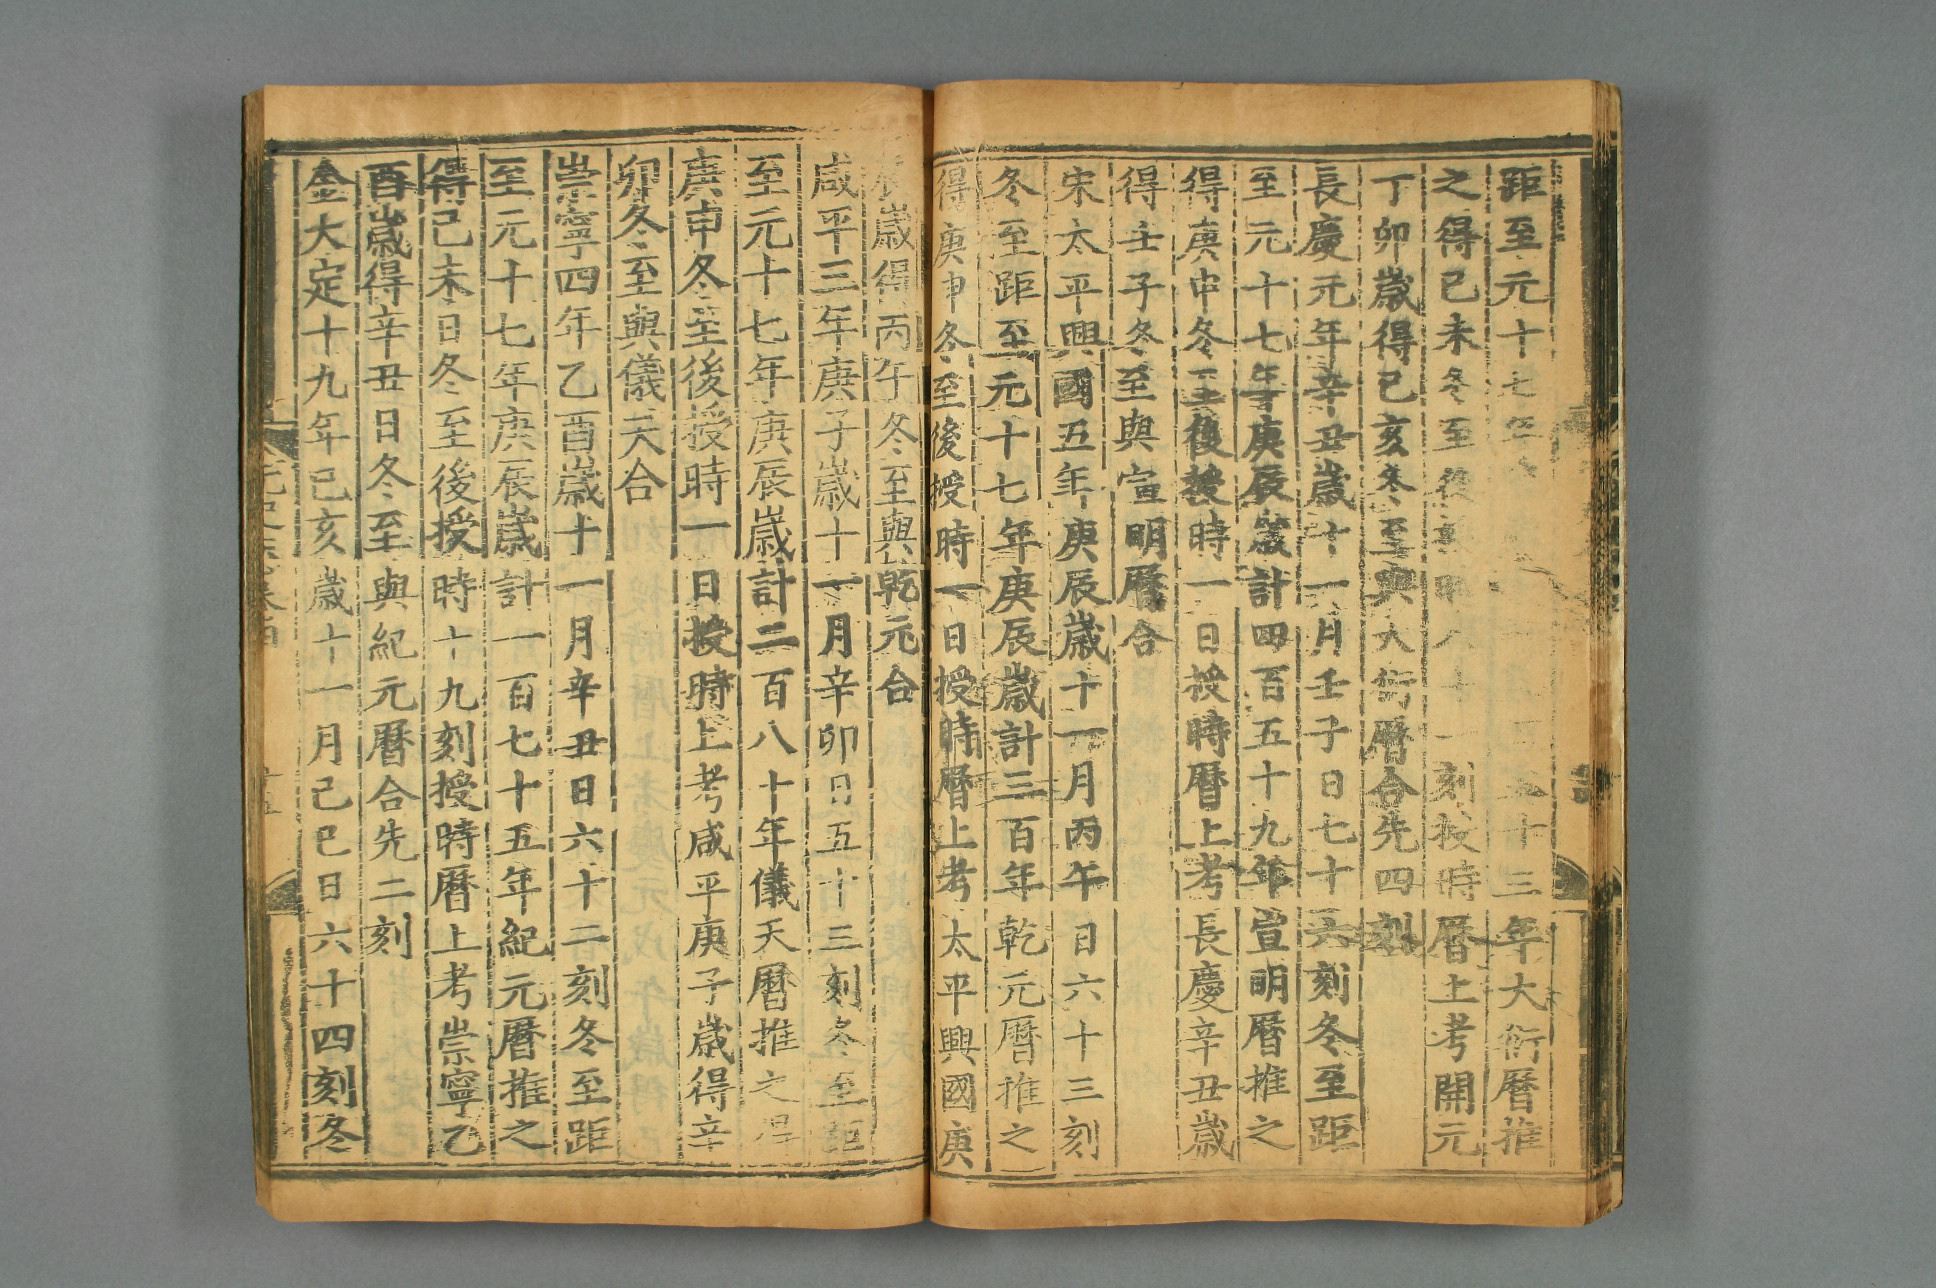 距至元十七年 百五十三年大衍曆推
之得己未冬至後 時八十一刻授時曆上考開元
丁卯歲得己亥冬至與大衍曆合先四刻
長慶元年辛丑歲十一月壬子日七十六刻冬至距
至元十七年庚辰歲計四百五十九年宣明曆推之
得庚申冬至後授時一日授時曆上考長慶辛丑歲
得壬子冬至與宣明曆合
宋太平興國五年庚辰歲十一月丙午日六十三刻
冬至距至元十七年庚辰歲計三百年乾元曆推之
得庚申冬至後授時一日授時曆上考太平興國庚
辰歲得丙午冬至與乾元合
咸平三年庚子歲十一月辛卯日五十三刻冬至距
至元十七年庚辰歲計二百八十年儀天曆推之得
庚申冬至後授時一日授時上考咸平庚子歲得辛
卯冬至與儀天合
崇寧四年乙酉歲十一月辛丑日六十二刻冬至距
至元十七年庚辰歲計一百七十五年紀元曆推之
得己未日冬至後授時十九刻授時曆上考崇寧乙
酉歲得辛丑日冬至與紀元曆合先二刻
金大定十九年己亥歲十一月己巳日六十四刻冬